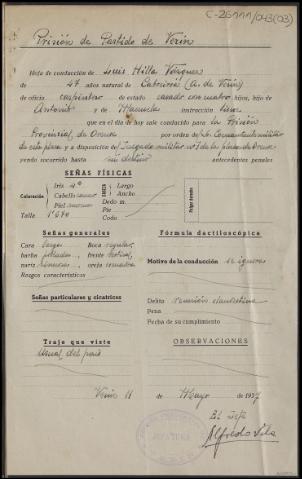 C-26111/043(03)
Prisión de Partido de Verín
Hoja de conducción de Luis Villa Vázquez
de 47 años natural de Cabreiroá (A. de Verín)
de oficio carpintero de estado casado con cuatro hijos, hijo de
Antonio y de Manuela instrucción
que en el día de hoy sale conducido para la Prisión
Provincial, de Orense por orden de Comandante militar
de esta plaza y a disposición del Juzgado militar nº 1 de la plaza de Orense
yendo socorrido hasta su destino antecedentes penales
SEÑAS FÍSICAS
Coloración
Iris 4º
Cabello
Piel
Talla 1'670
Largo
Ancho
Dedo m.
Pie
Codo
Pulgar derecho
Señas generales
Cara larga Boca regular
barba poblada frente vertical
nariz
Rasgos característicos
Señas particulares y cicatrices
Traje que viste
Usual del país
Fórmula dactiloscópica
Motivo de la conducción se ignora
Delito reunión clandestina
Pena
Fecha de su cumplimiento
OBSERVACIONES
Verín 11 de Mayo de 1937
El Jefe
Alfredo Vila
JEFATURA